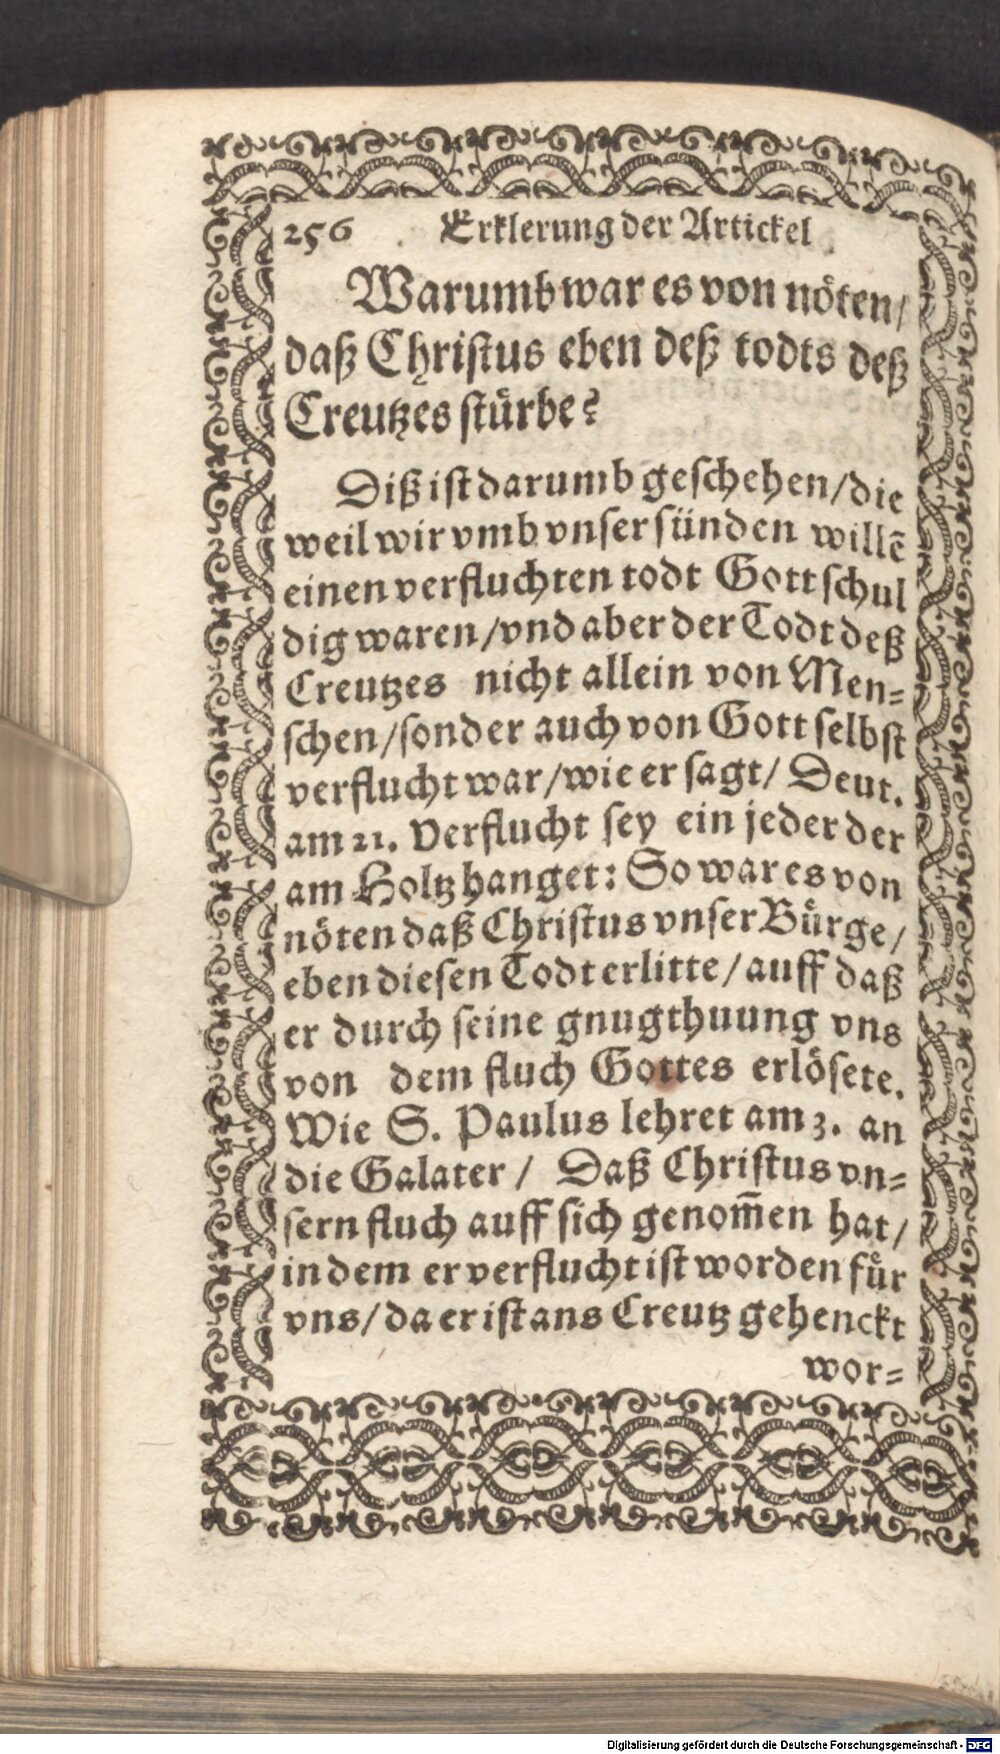 256 Erklerung der Artickel
Warumb war es von nöten/
daß Christus eben deß todts deß
Creutzes stürbe?
Diß ist darumb geschehen/die
weil wir vmb vnser sünden willē
einen verfluchten todt Gott schul
dig waren/vnd aber der Todt deß
Creutzes nicht allein von Men=
schen/sonder auch von Gott selbst
verflucht war/wie er sagt/ Deut.
am 21. Verflucht sey ein jeder der
am Holtz hanget: So war es von
nöten daß Christus vnser Bürge/
eben diesen Todt erlitte/auff daß
er durch seine gnugthuung vns
von dem fluch Gottes erlösete.
Wie S. Paulus lehret am 3. an
die Galater/ Daß Christus vn=
sern fluch auff sich genom̄en hat/
in dem er verflucht ist worden für
vns/da er ist ans Creutz gehenckt
wor=
Digitalisierung gefördert durch die Deutsche Forschungsgemeinschaft - DFG